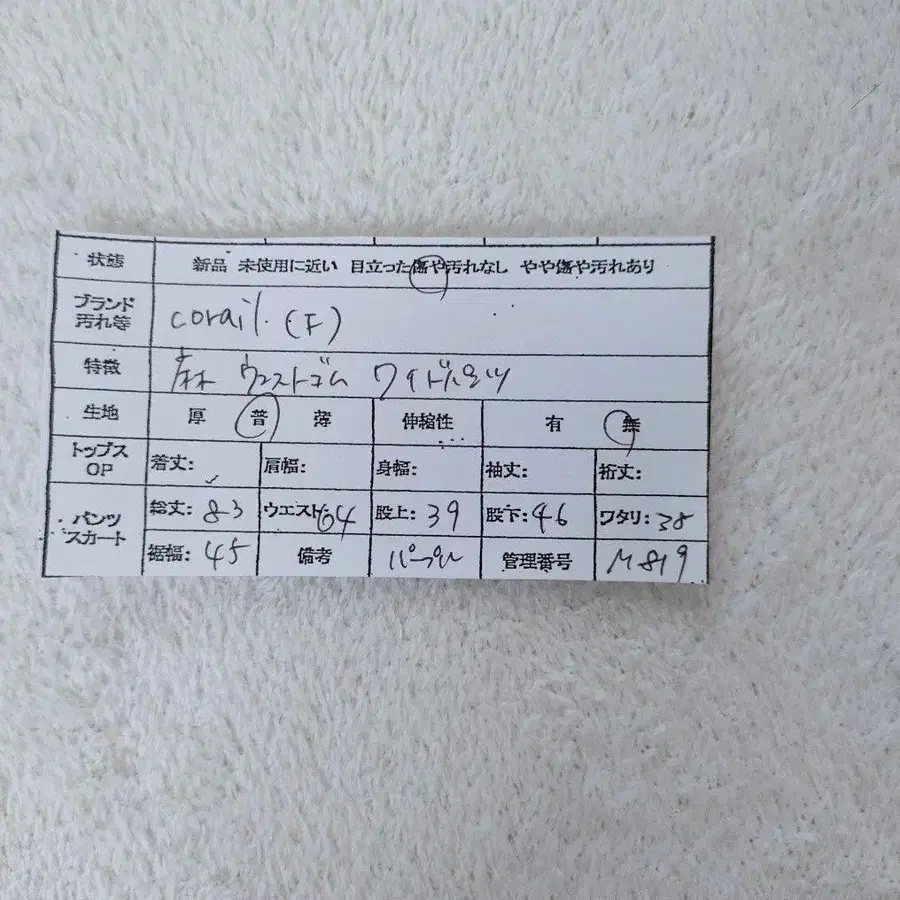 状態 新品 未使用に近い 目立った傷や汚れなし やや傷や汚れあり
ブランド 汚れ等 corail. (F)
特徴 ウエストゴム ワイドパンツ
生地 厚 普 薄 伸縮性 有 無
トップス OP 着丈: 肩幅: 身幅: 袖丈: 裄丈:
パンツ スカート 総丈: 83 ウエスト: 64 股上: 39 股下: 46 ワタリ: 38
裾幅: 45 備考 パープル 管理番号 M819